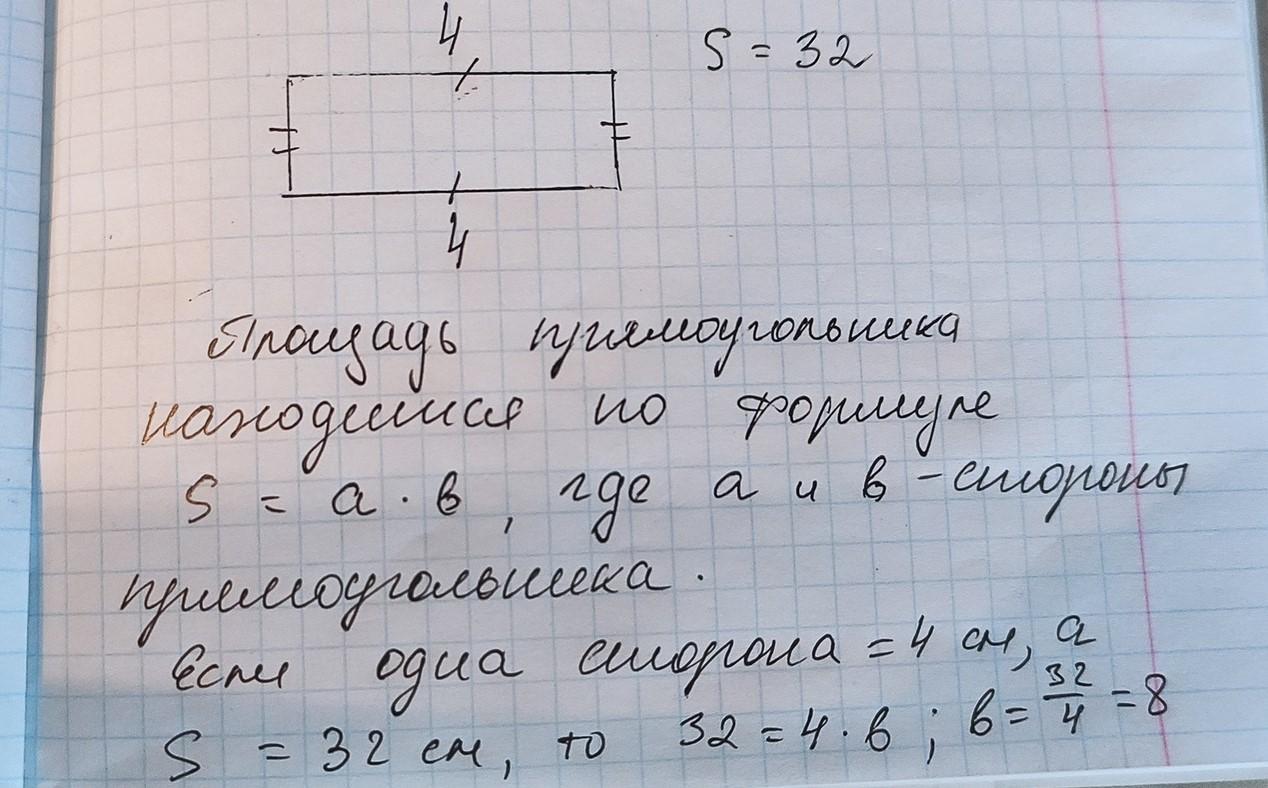 4
S = 32
4
Площадь прямоугольника
находится по формуле
S = a · в , где a и в - стороны
прямоугольника.
Если одна сторона = 4 см, а
S = 32 см, то 32 = 4 · в ; в = 32/4 = 8